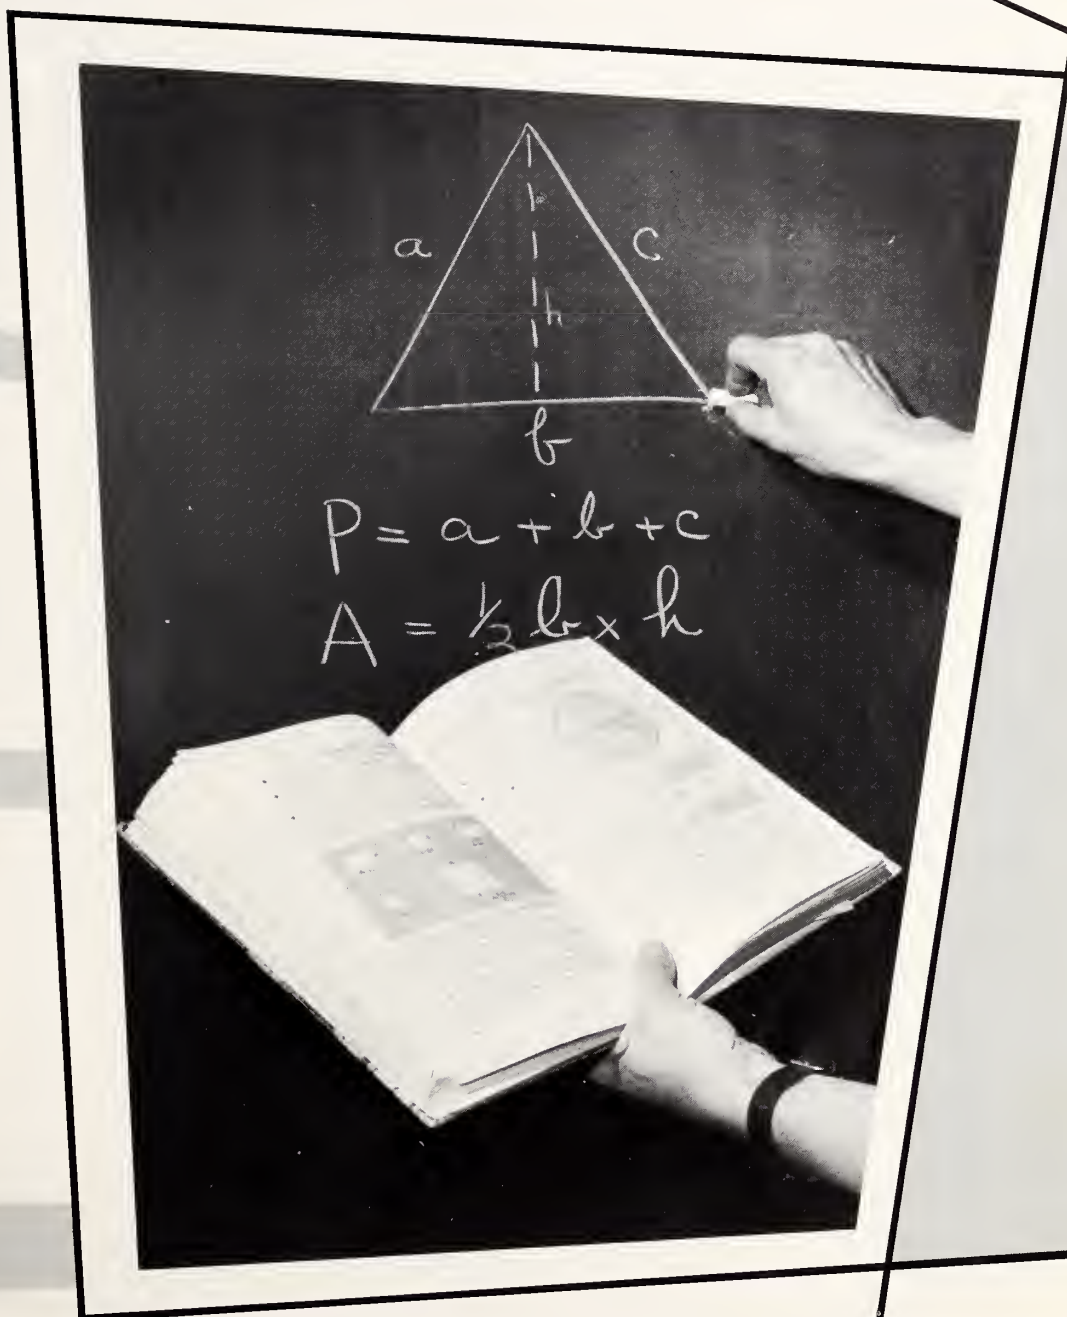 a
c
h
b
P = a + b + c
A = ½ b x h